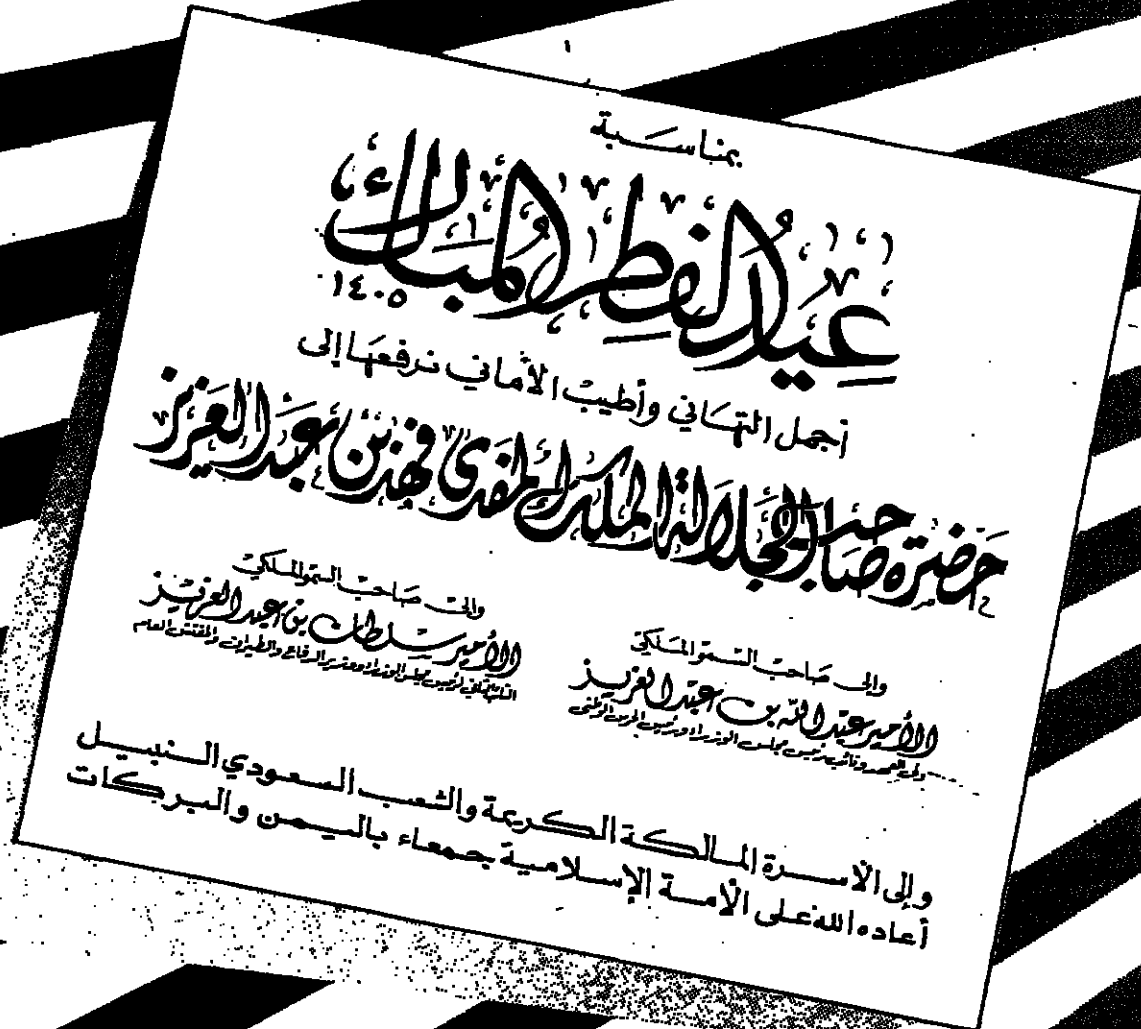 بمناسبة
عيد الفطر المبارك
١٤٠٥
أجمل التهاني وأطيب الأماني نرفعها إلى
حضرة صاحب الجلالة الملك المفدى فهد بن عبد العزيز
وإلى صاحب السمو الملكي
الأمير عبد الله بن عبد العزيز
ولي العهد ونائب رئيس مجلس الوزراء ورئيس الحرس الوطني
وإلى صاحب السمو الملكي
الأمير سلطان بن عبد العزيز
النائب الثاني لرئيس مجلس الوزراء ووزير الدفاع والطيران والمفتش العام
وإلى الأسرة المالكة الكريمة والشعب السعودي النبيل
أعاده الله على الأمة الإسلامية جمعاء باليمن والبركات